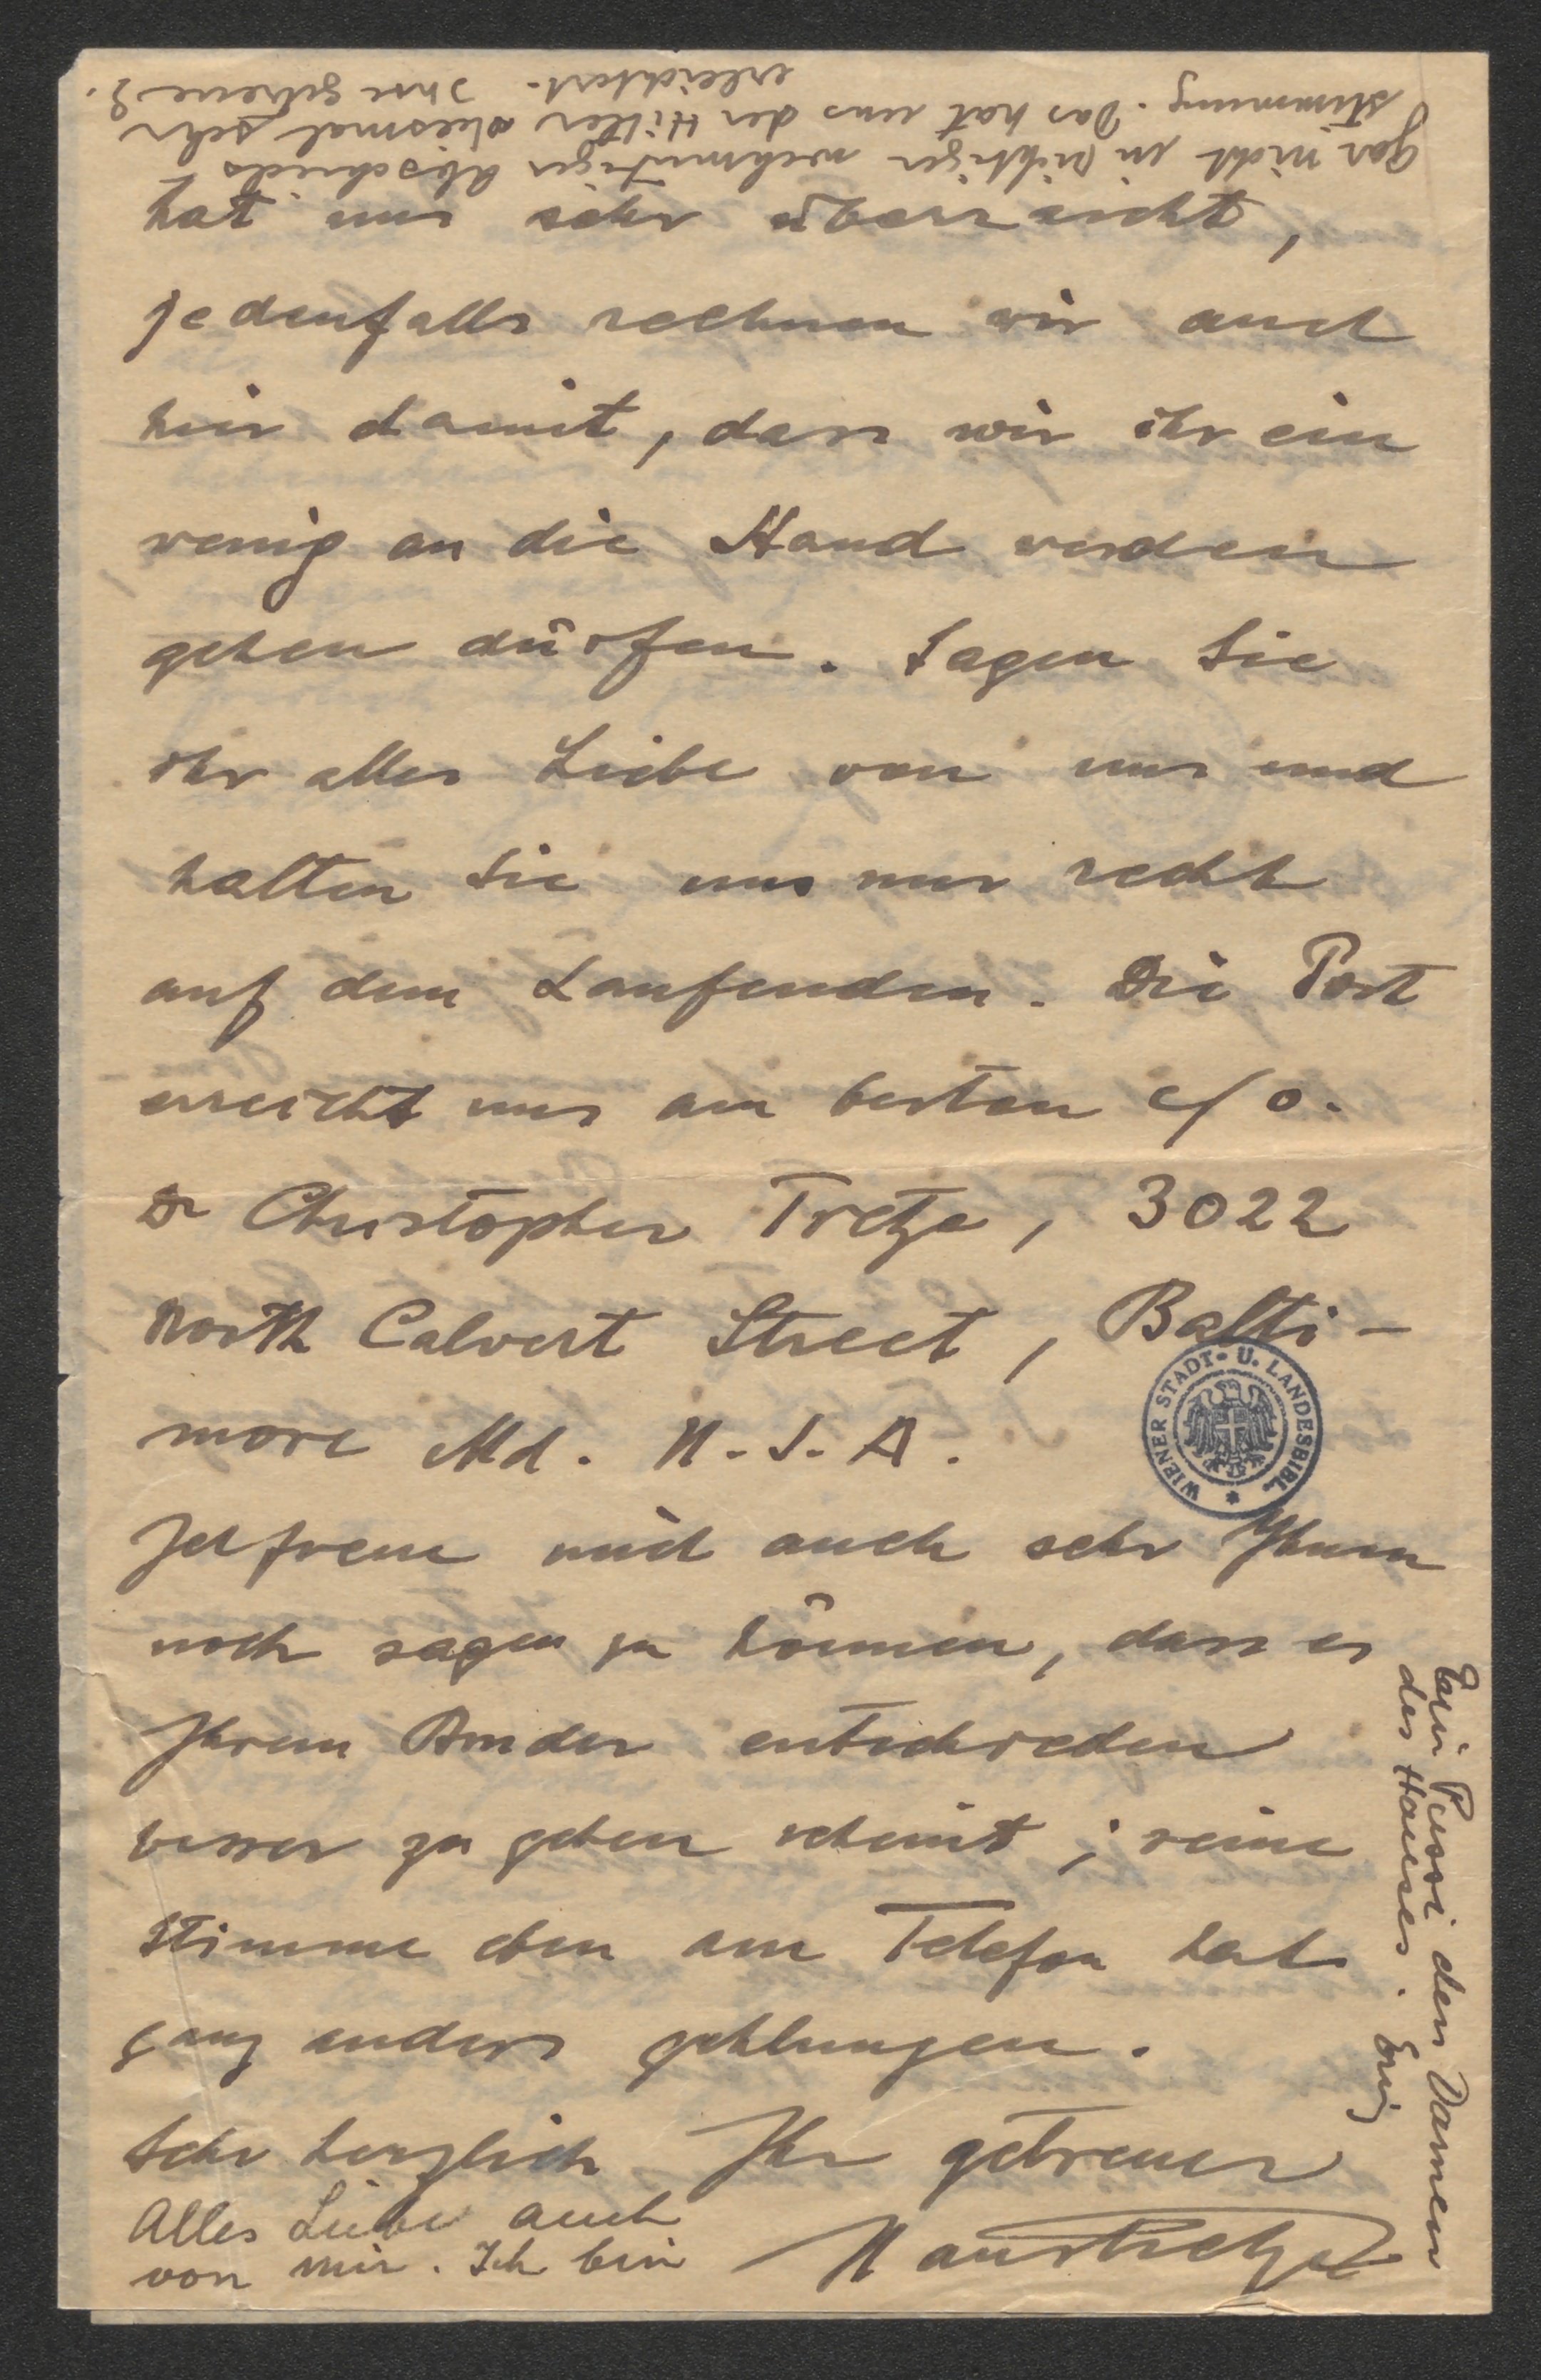 hat uns sehr überrascht,
jedenfalls rechnen wir auch
hier damit, dass wir ihr ein
wenig an die Hand werden
gehen dürfen. Sagen Sie
ihr alles Liebe von uns und
halten Sie uns nur recht
auf dem Laufenden. Die Post
erreicht uns am besten c/o.
Dr Christopher Tretze, 3022
North Calvert Street, Balti-
more Md. U.S.A.
Ich freue mich auch sehr Ihnen
noch sagen zu können, dass es
Ihrem Bruder entschieden
besser zu gehen scheint; seine
Stimme eben am Telefon hat
ganz anders geklungen.
Sehr herzlich Ihr getreuer
Hans Tretze
Alles Liebe auch
von mir. Ich bin
gar nicht in richtiger wehmütiger Abschieds
stimmung. Das hat uns der Hitler diesmal sehr
erleichtert. Ihre getreue
den Damen
des Hauses.
WIENER STADT- U. LANDESBIBL.